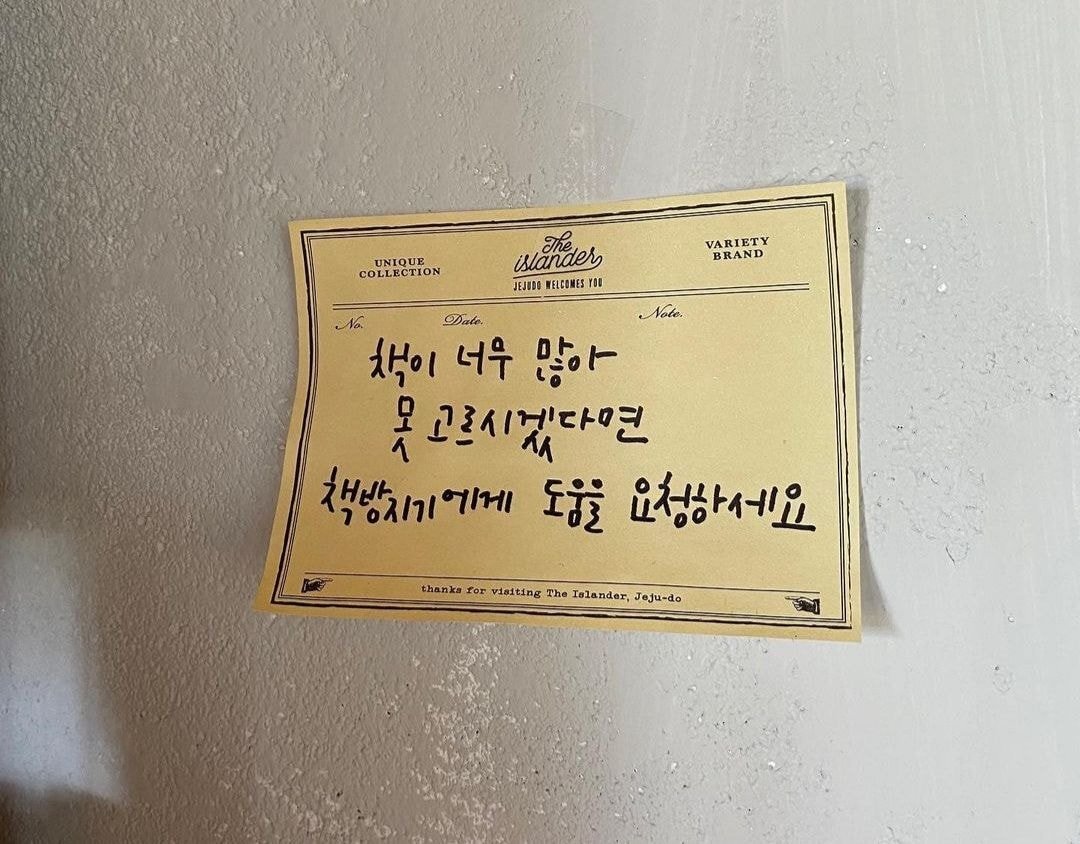 UNIQUE
COLLECTION
The
islander
JEJUDO WELCOMES YOU
VARIETY
BRAND
No. Date. Note.
책이 너무 많아
못 고르시겠다면
책방지기에게 도움을 요청하세요
thanks for visiting The Islander, Jeju-do